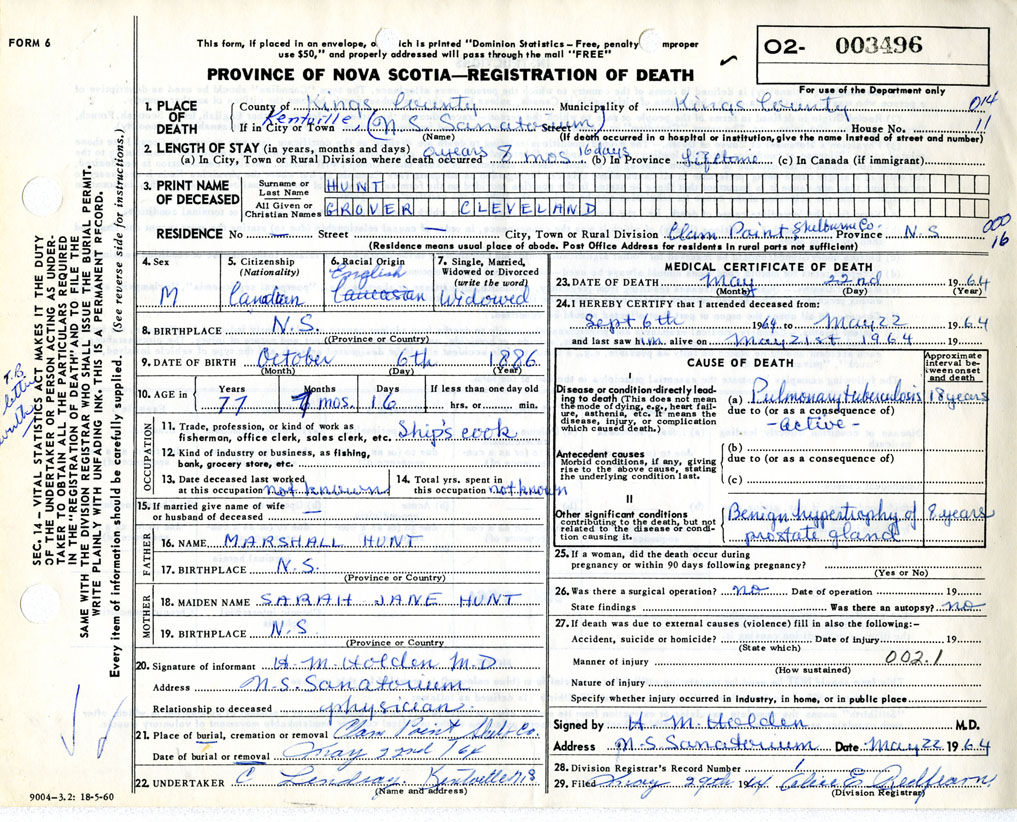 FORM 6
This form, if placed in an envelope, o ich is printed "Dominion Statistics – Free, penalty improper
use $50," and properly addressed will pass through the mail "FREE"
O2- 003496
PROVINCE OF NOVA SCOTIA—REGISTRATION OF DEATH
For use of the Department only
1. PLACE OF DEATH
County of Kings County Municipality of Kings County 014
If in City or Town Kentville, (N.S. Sanatorium) Street House No. 11
(Name) (If death occurred in a hospital or institution, give the name instead of street and number)
2. LENGTH OF STAY (in years, months and days)
(a) In City, Town or Rural Division where death occurred years 8 mos 16 days (b) In Province Lifetime (c) In Canada (if immigrant)
3. PRINT NAME OF DECEASED
Surname or Last Name HUNT
All Given or Christian Names GROVER CLEVELAND
RESIDENCE No — Street — City, Town or Rural Division Clam Point, Shelburne Co. Province N.S 000 16
(Residence means usual place of abode. Post Office Address for residents in rural parts not sufficient)
4. Sex M
5. Citizenship (Nationality) Canadian
6. Racial Origin English Caucasian
7. Single, Married, Widowed or Divorced (write the word) Widowed
8. BIRTHPLACE N.S.
(Province or Country)
9. DATE OF BIRTH October 6th 1886
(Month) (Day) (Year)
10. AGE in Years 77 Months 7 mos. Days 16 If less than one day old hrs. or min.
OCCUPATION
11. Trade, profession, or kind of work as fisherman, office clerk, sales clerk, etc. Ship's cook
12. Kind of industry or business, as fishing, bank, grocery store, etc.
13. Date deceased last worked at this occupation not known
14. Total yrs. spent in this occupation not known
15. If married give name of wife or husband of deceased —
FATHER
16. NAME MARSHALL HUNT
17. BIRTHPLACE N.S.
(Province or Country)
MOTHER
18. MAIDEN NAME SARAH JANE HUNT
19. BIRTHPLACE N.S
(Province or Country
20. Signature of informant H.M. Holden M.D
Address N.S. Sanatorium
Relationship to deceased physician
21. Place of burial, cremation or removal Clam Point Shelb. Co.
Date of burial or removal May 22nd /64
22. UNDERTAKER C Lindsay. Kentville N S
(Name and address)
MEDICAL CERTIFICATE OF DEATH
23. DATE OF DEATH May 22nd 1964
(Month) (Day) (Year)
24. I HEREBY CERTIFY that I attended deceased from:
Sept 6th 1961 to May 22 1964
and last saw him alive on May 21st 1964
CAUSE OF DEATH
Approximate interval between onset and death
I
Disease or condition directly leading to death (This does not mean the mode of dying, e.g., heart failure, asthenia, etc. It means the disease, injury, or complication which caused death.)
(a) Pulmonary tuberculosis 18 years
due to (or as a consequence of)
- active -
Antecedent causes
Morbid conditions, if any, giving rise to the above cause, stating the underlying condition last.
(b)
due to (or as a consequence of)
(c)
II
Other significant conditions contributing to the death, but not related to the disease or condition causing it.
Benign hypertrophy of prostate gland 8 years
25. If a woman, did the death occur during pregnancy or within 90 days following pregnancy?
(Yes or No)
26. Was there a surgical operation? no Date of operation 19
State findings Was there an autopsy? no
27. If death was due to external causes (violence) fill in also the following:–
Accident, suicide or homicide? Date of injury 19
(State which)
Manner of injury 002.1
(How sustained)
Nature of injury
Specify whether injury occurred in industry, in home, or in public place
Signed by H. M. Holden M.D.
Address N.S. Sanatorium Date May 22 1964
28. Division Registrar's Record Number
29. Filed May 29th 1964 Alice E. Redfearn
(Division Registrar)
SEC. 14 – VITAL STATISTICS ACT MAKES IT THE DUTY
OF THE UNDERTAKER OR PERSON ACTING AS UNDER-
TAKER TO OBTAIN ALL THE PARTICULARS REQUIRED
IN THE "REGISTRATION OF DEATH" AND TO FILE THE
SAME WITH THE DIVISION REGISTRAR WHO SHALL ISSUE THE BURIAL PERMIT.
WRITE PLAINLY WITH UNFADING INK. THIS IS A PERMANENT RECORD.
Every item of information should be carefully supplied. (See reverse side for instructions.)
T.B. letter
9004-3.2: 18-5-60